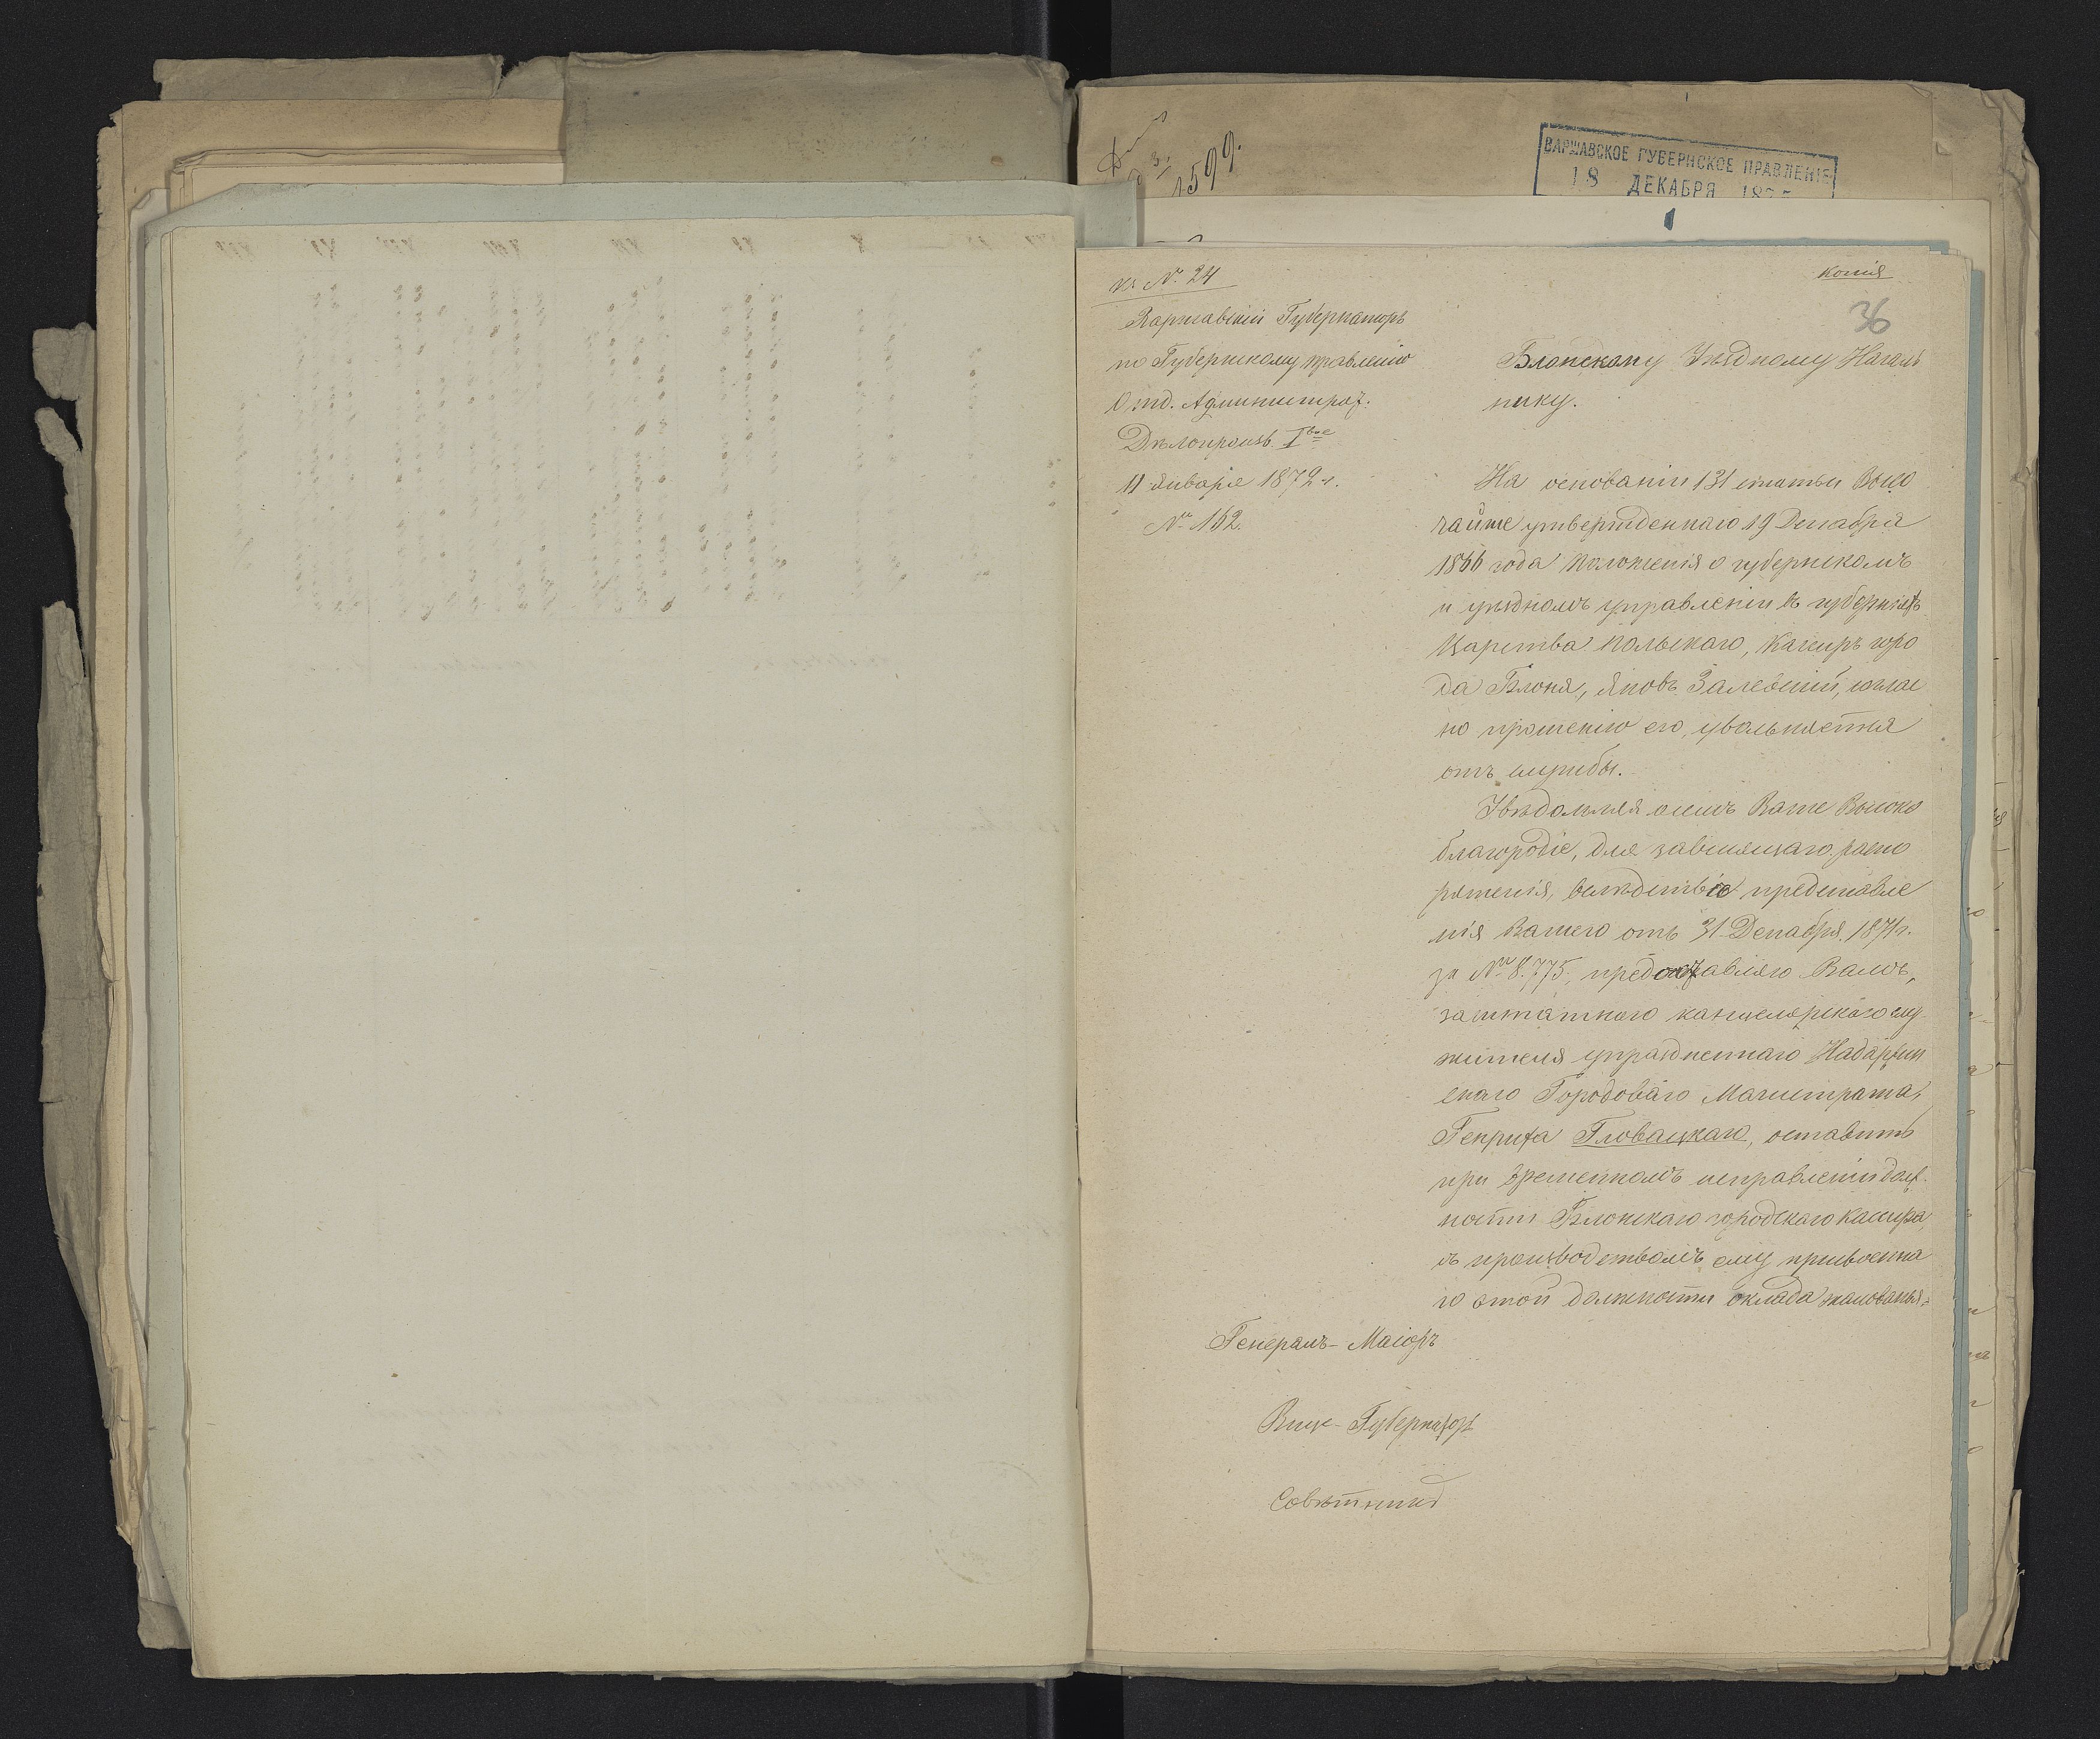 1599.
ВАРШАВСКОЕ ГУБЕРНСКОЕ ПРАВЛЕНІЕ
18 ДЕКАБРЯ
къ № 24
копія
36
Варшавскій Губернаторъ
по Губернскому правленію
Отд. Администрат.
Дѣлопроизв. I вое
11 Января 1872 г.
№ 162.
Блонскому Уѣздному Началь
нику.
На основаніи 131 статьи Высо
чайше утвержденнаго 19 Декабря
1866 года Положенія о губернскомъ
и уѣздномъ управленіи въ губерніяхъ
Царства Польскаго, Кассиръ горо
да Блоня, Яковъ Залевскій, соглас
но прошенію его, увольняется
отъ службы.
Увѣдомляя о семъ Ваше Высоко
благородіе, для зависящаго распо
ряженія, вслѣдствіе представле
нія Вашего отъ 31 Декабря 1871 г.
за № 8.775, предоставляю Вамъ,
заштатнаго канцелярскаго слу
жителя упраздненнаго Надаржин
скаго Городоваго Магистрата,
Генриха Гловацкаго, оставить
при временномъ исправленіи долж
ности Блонскаго городскаго Кассира,
съ производствомъ ему присвоенна
го этой должности оклада жалованья.
Генералъ-Маіоръ
Вице-Губернаторъ
Совѣтникъ